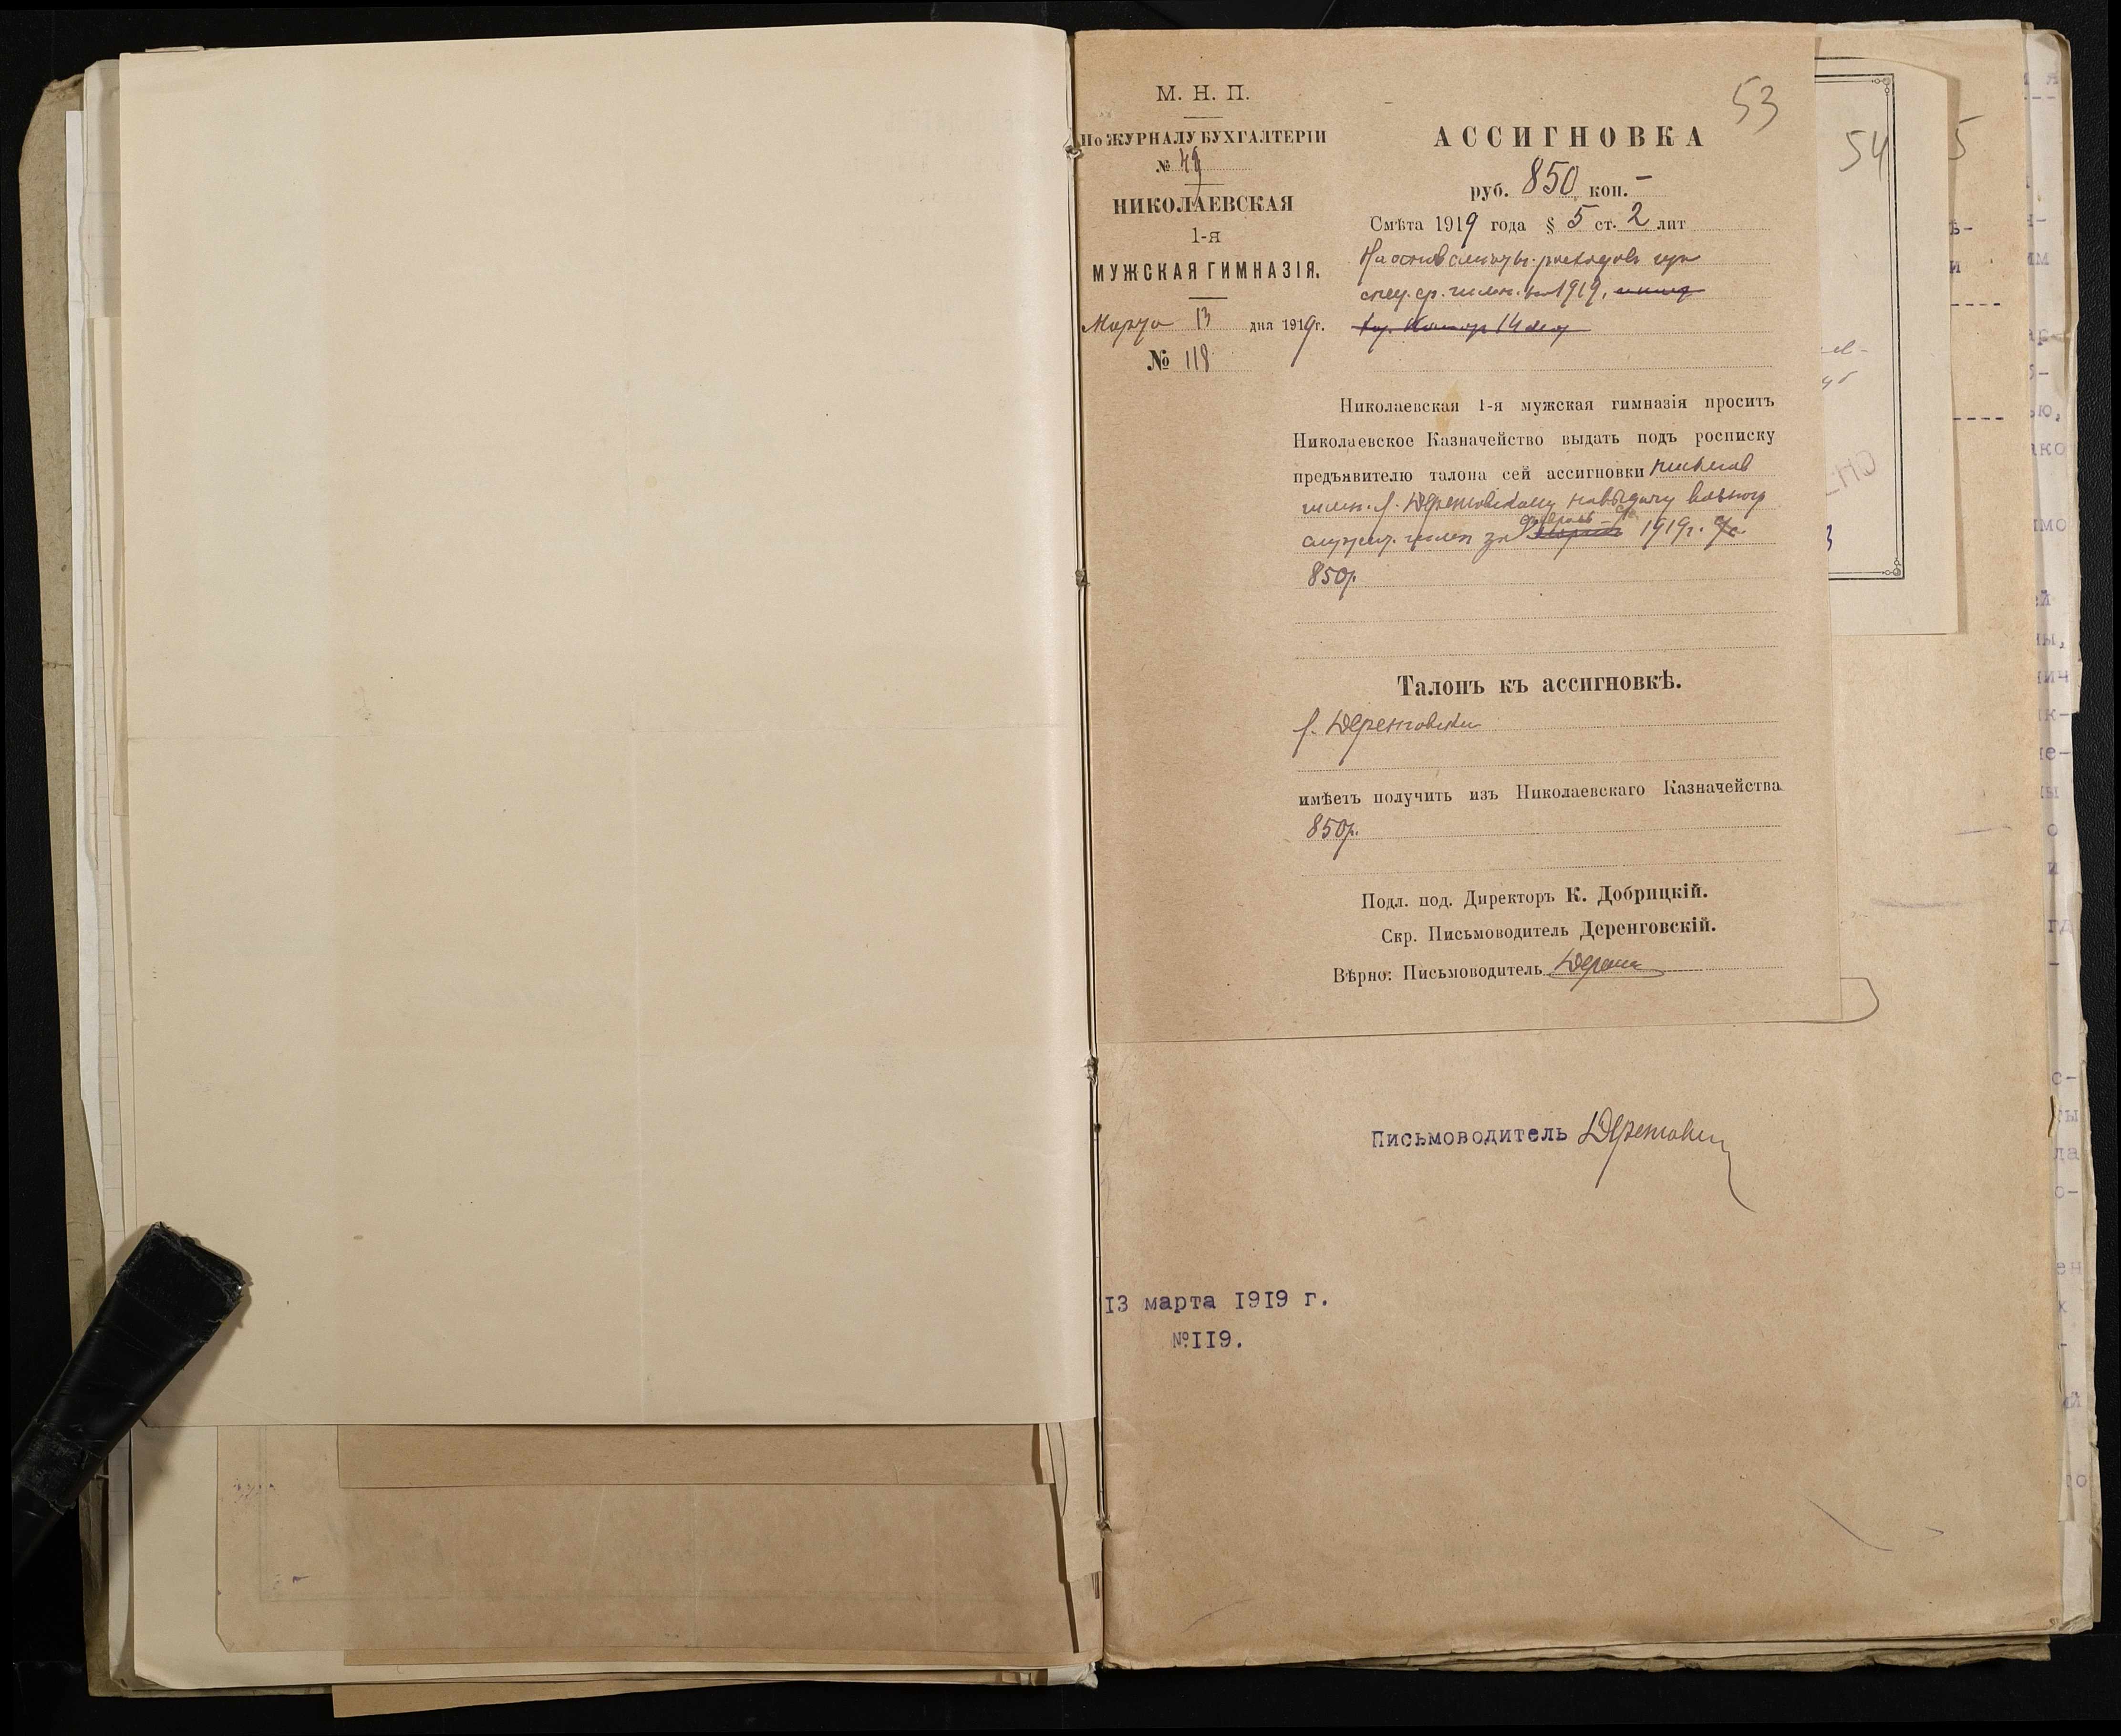 М. Н. П.
По ЖУРНАЛУ БУХГАЛТЕРІИ
№ 49
НИКОЛАЕВСКАЯ
1-я
МУЖСКАЯ ГИМНАЗІЯ.
Марта 13 дня 1919г.
№ 118
53
АССИГНОВКА
руб. 850 коп. –
Смѣта 1919 года § 5 ст. 2 лит
спец. ср. гимн. на 1919,
Николаевская 1-я мужская гимназія проситъ
Николаевское Казначейство выдать подъ росписку
предъявителю талона сей ассигновки
гимн. Деренговскому на выдачу
служит. гимн за февраль 1919г.
850р.
Талонъ къ ассигновкѣ.
Деренговски
имѣетъ получить изъ Николаевскаго Казначейства
850р.
Подл. под. Директоръ К. Добрицкій.
Скр. Письмоводитель Деренговскій.
Вѣрно: Письмоводитель
54
5
Письмоводитель
13 марта 1919 г.
№119.